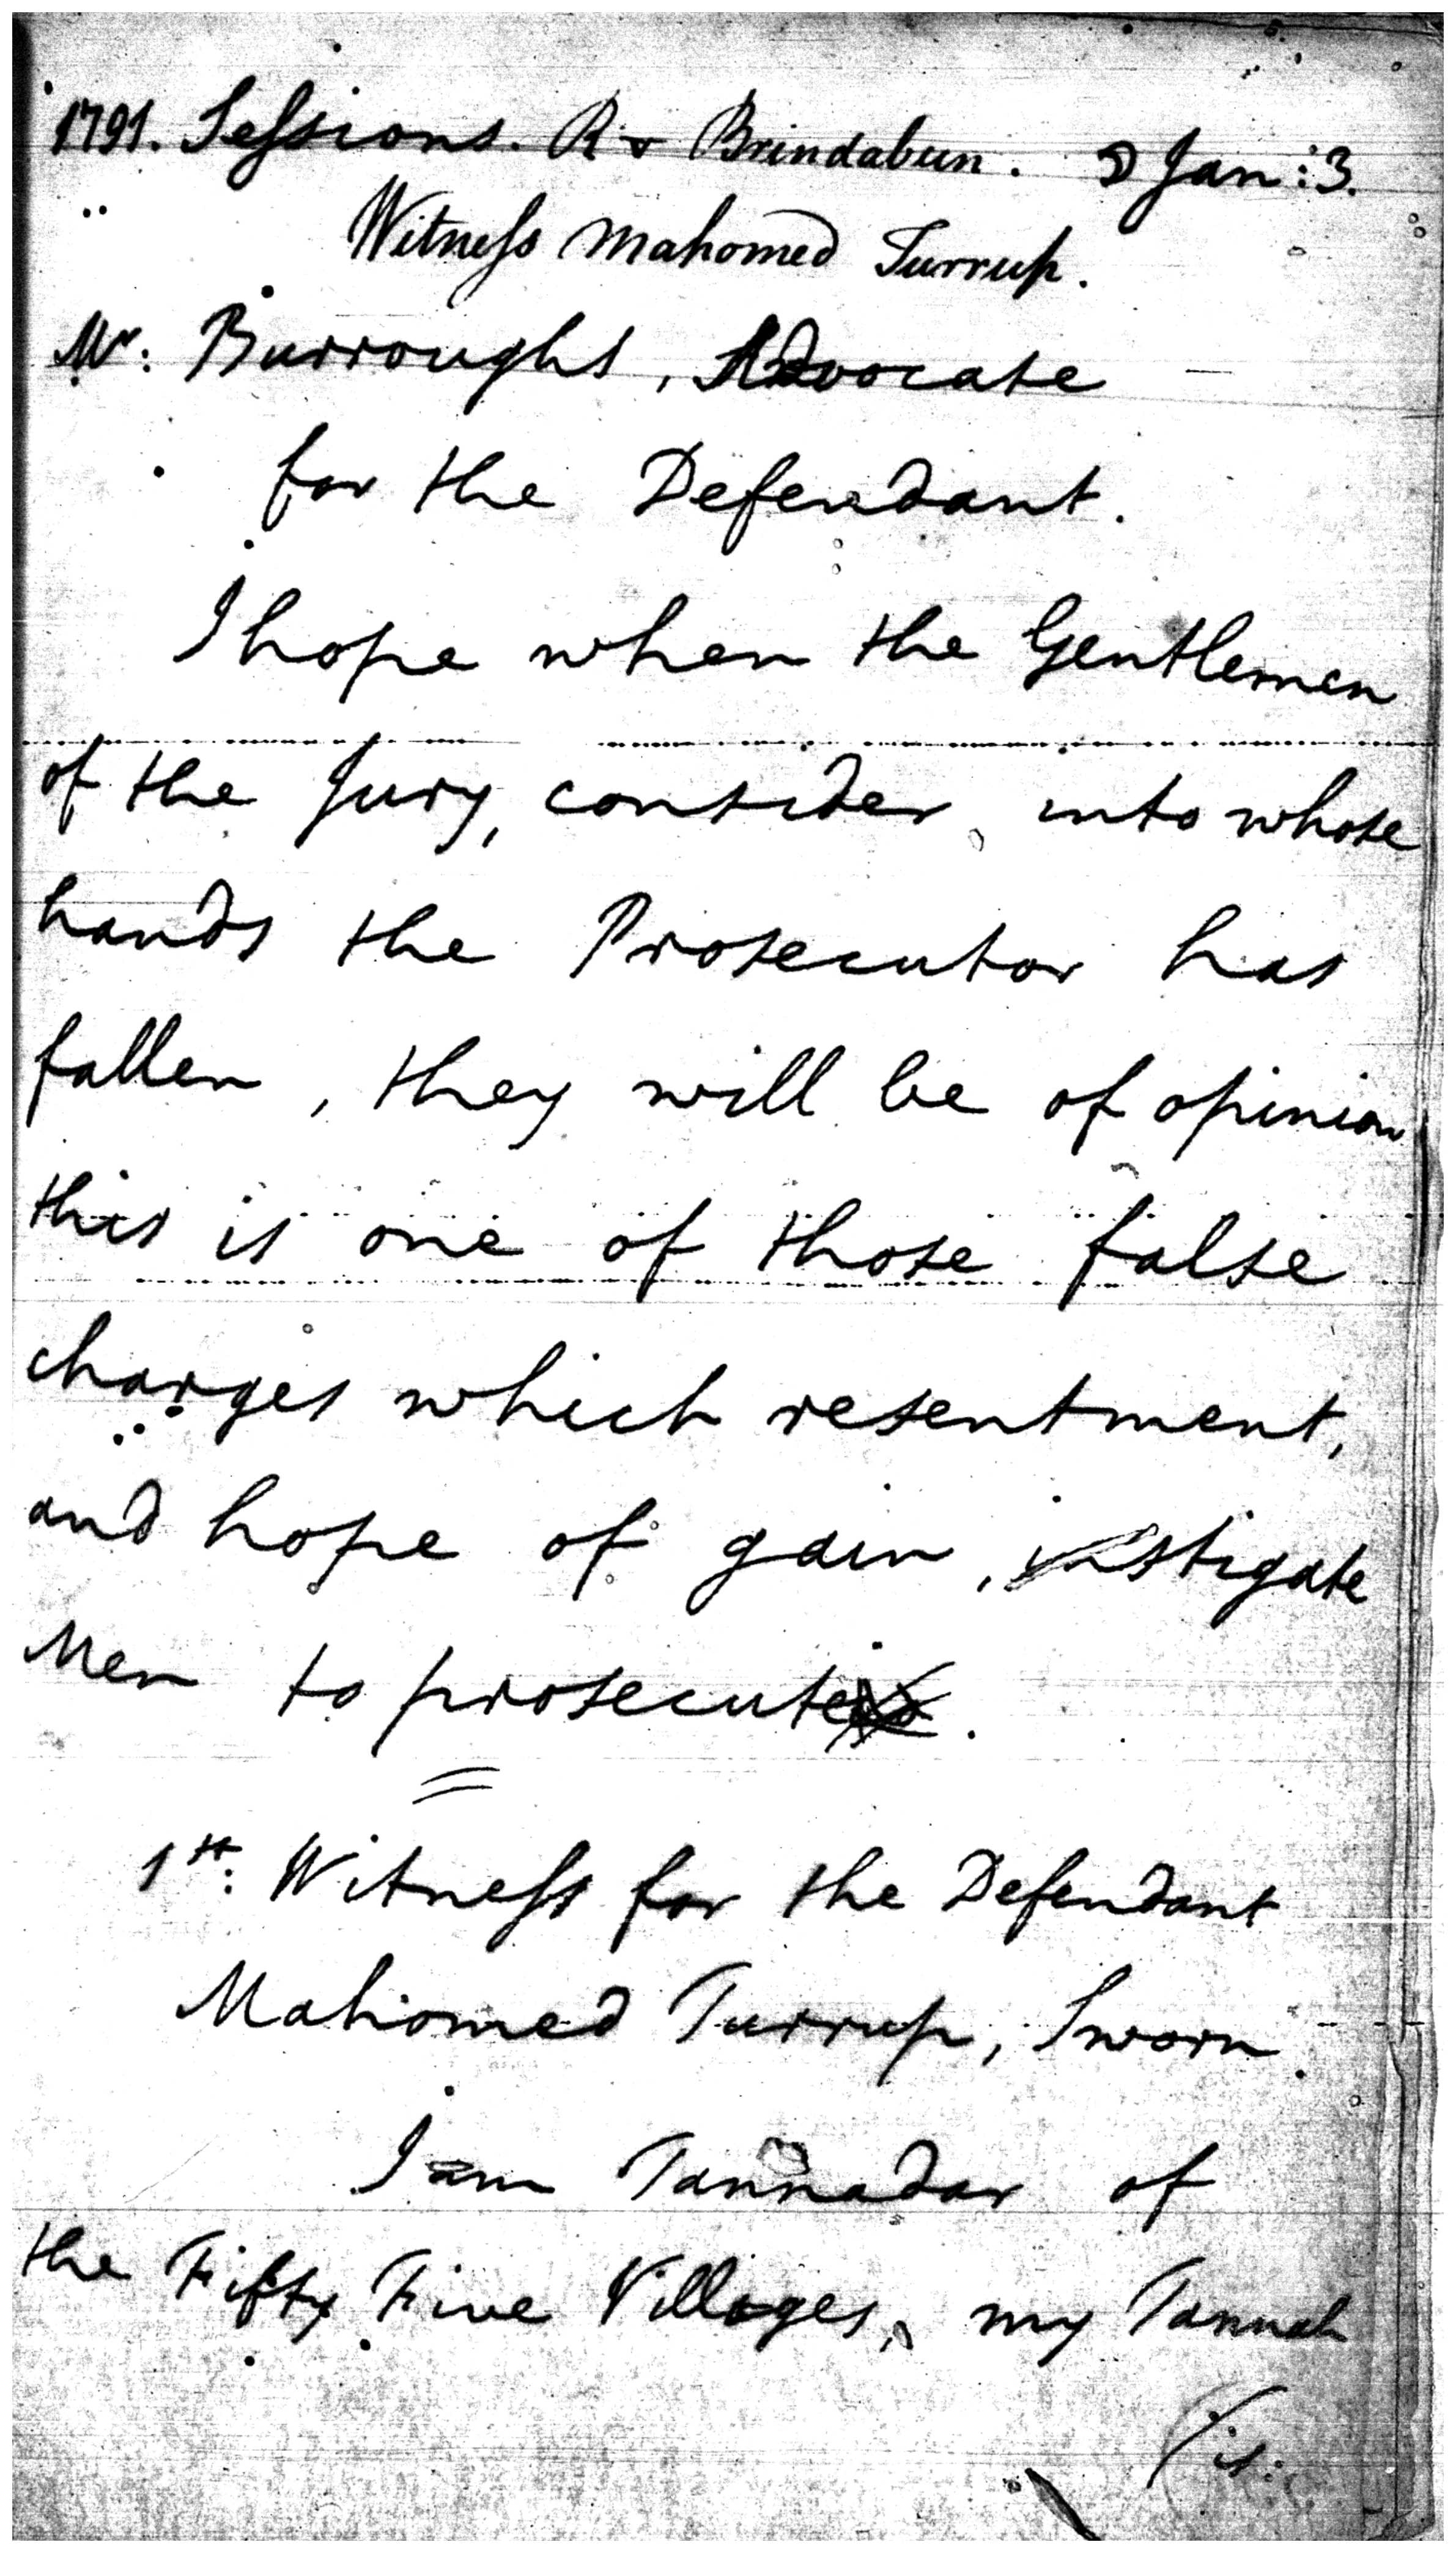 1791. Sessions. R v Brindabun. ☽ Jan: 3.
Witness Mahomed Turrup.
Mr: Burroughs, Advocate
for the Defendant.
I hope when the Gentlemen
of the Jury, consider, into whose
hands the Prosecutor has
fallen, they will be of opinion
this is one of those false
charges which resentment,
and hope of gain, instigate
Men to prosecute.
1st: Witness for the Defendant
Mahomed Turrup, Sworn.
I am Tannadar of
the Fifty Five Villages, my Tannah
(is: